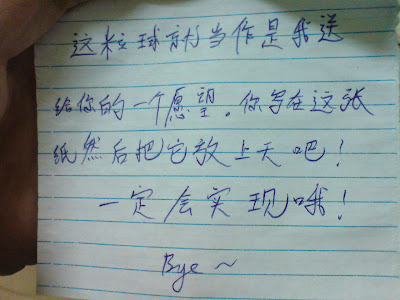 这粒球就当作是我送
给你的一个愿望。你写在这张
纸然后把它放上天吧！
一定会实现哦！
Bye ~